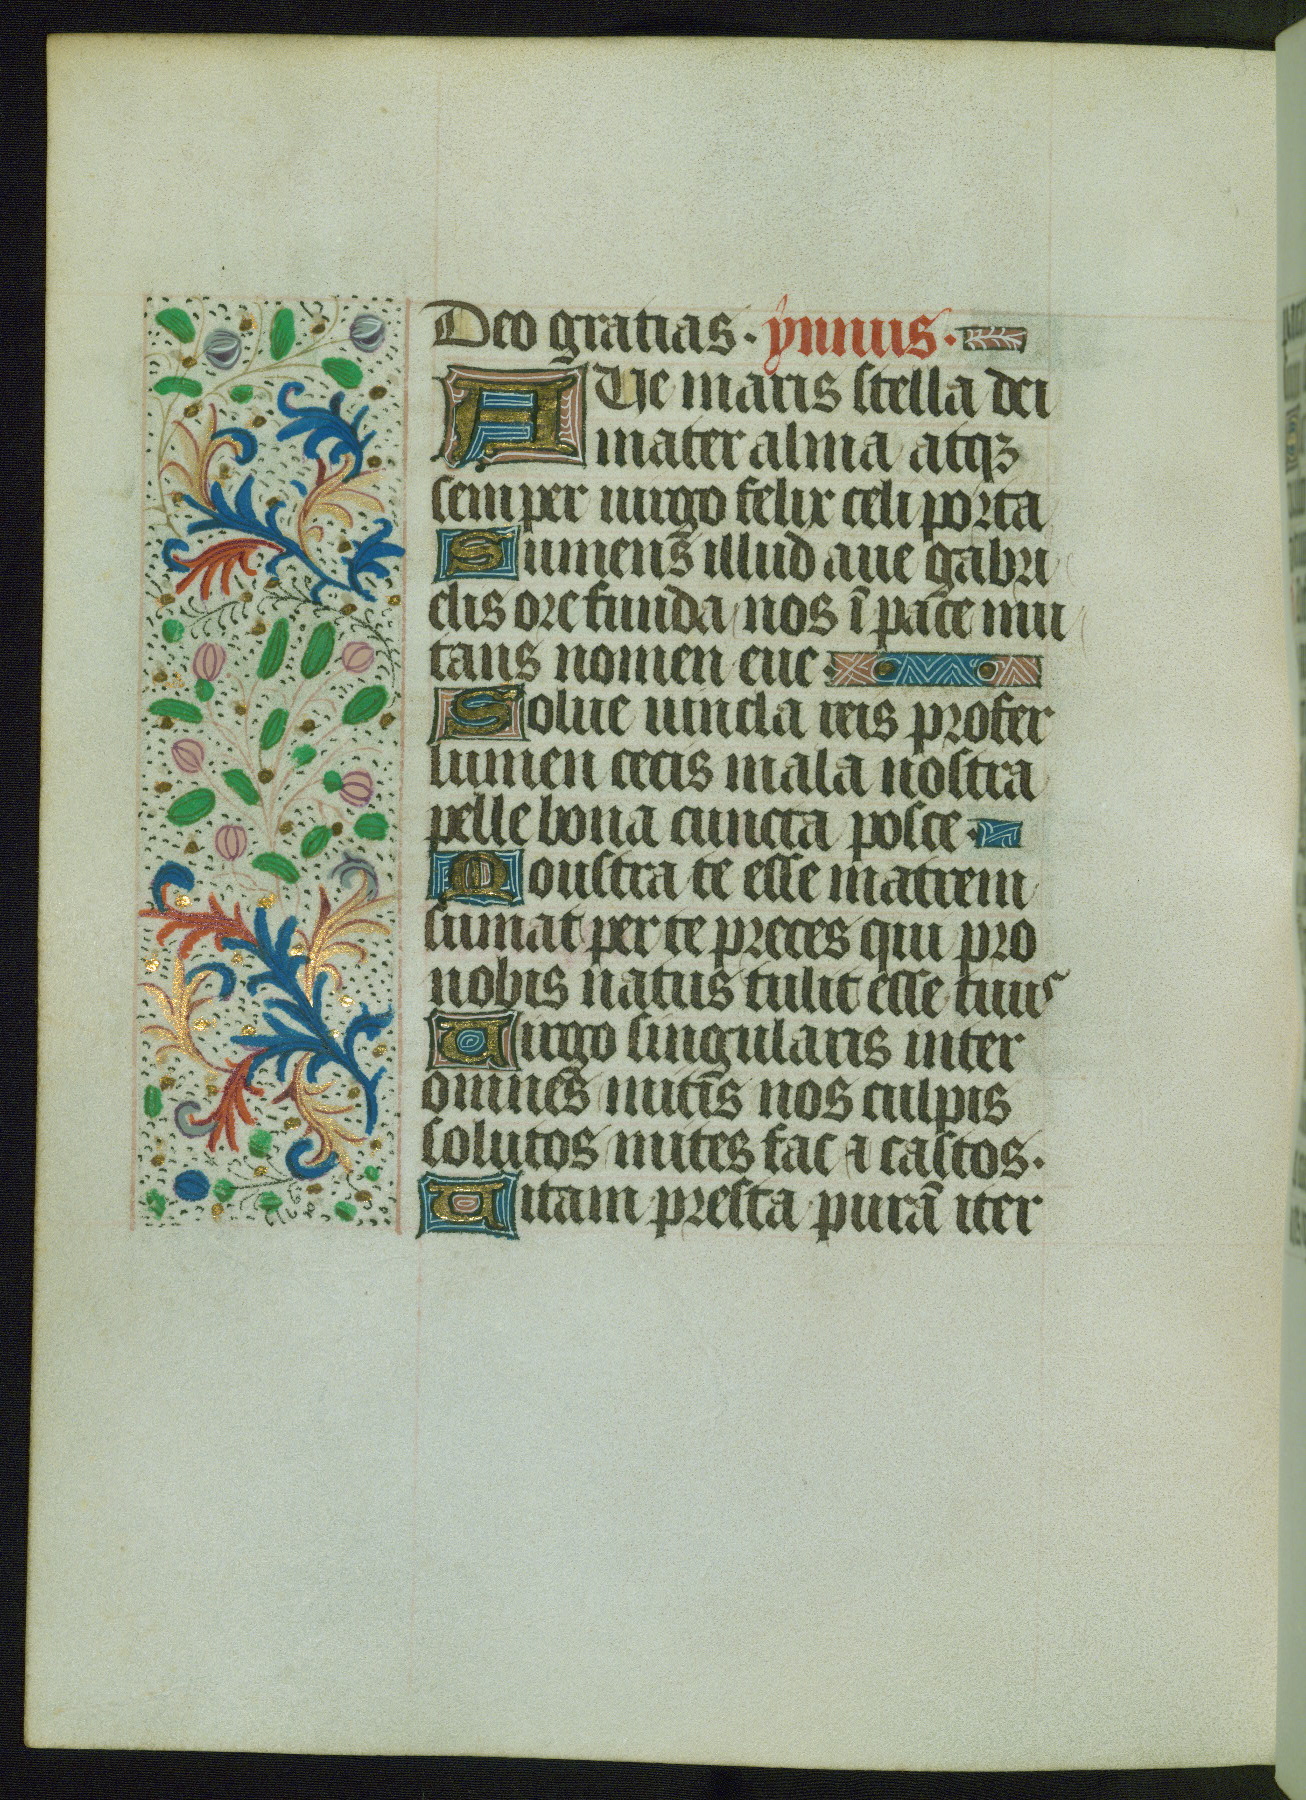 Deo gratias. ymnus.
AUe maris stella dei
mater alma atqꝫ
semper uirgo felix celi porta
Sumens illud aue gabri
elis ore funda nos ī pace mu
tans nomen eue.
Solue uincla reis profer
lumen cecis mala nostra
pelle bona cuncta posce.
Monstra te esse matrem
sumat per te preces qui pro
nobis natus tulit esse tuus
Uirgo singularis inter
omnes mitis nos culpis
solutos mites fac ⁊ castos.
Uitam presta purā iter